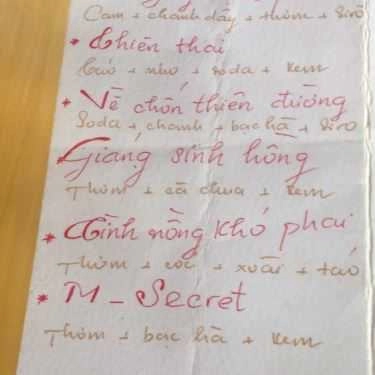 Cam + chanh dây + thơm + Sirô
* Thiên thai
Táo + nho + soda + kem
* Về chốn thiên đường
Soda + chanh + bạc hà + Siro
Giáng sinh hồng
Thơm + cà chua + kem
* Tình nồng khó phai
Thơm + cóc + xoài + táo
* M - Secret
Thơm + bạc hà + kem